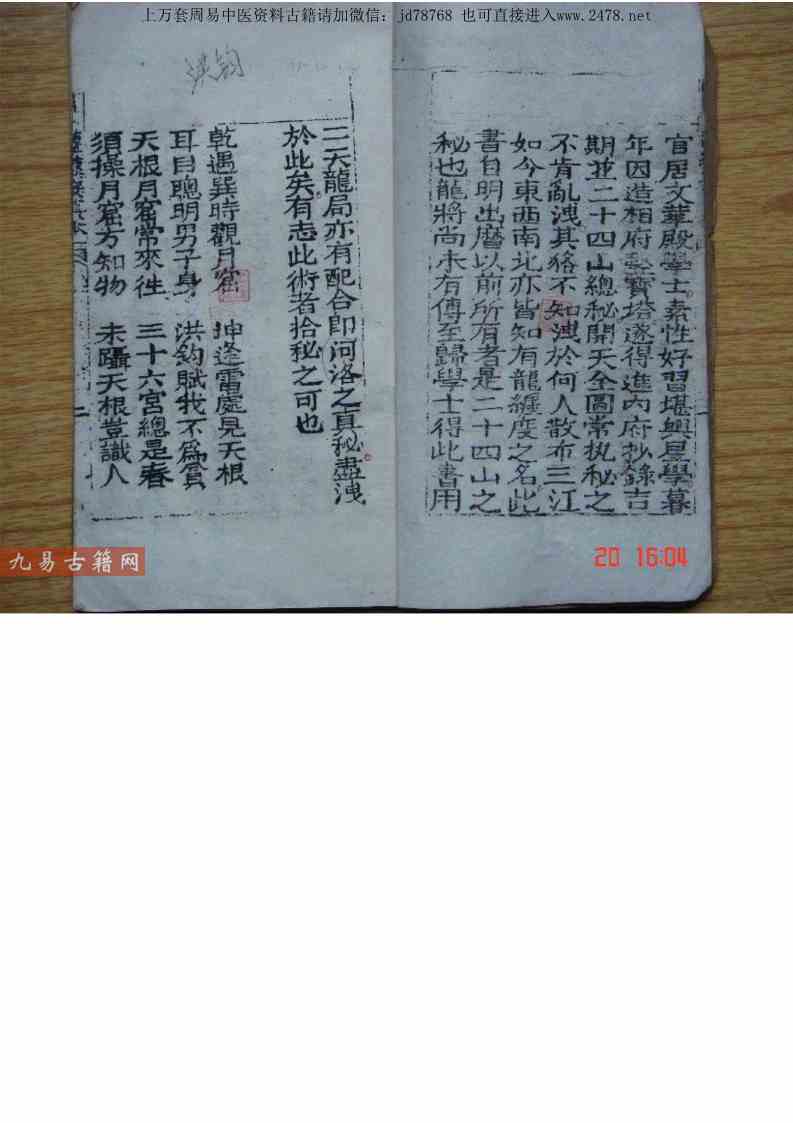 上万套周易中医资料古籍请加微信：jd78768 也可直接进入www.2478.net
洪鈞
官居文華殿學士素性好習堪輿星學暮
年因造相府寶塔遂得進內府抄錄吉
期並二十四山總秘開天全圖常执秘之
不肯亂洩其臵不知洩於何人散布三江
如今東西南北亦皆知有龍纏度之名此
書自明出曆以前所有者是二十四山之
秘也龍將尚未有傳至歸學士得此書用
二天龍局亦有配合即河洛之真秘盡洩
於此矣有志此術者拾秘之可也
乾遇巽時觀月窟 坤逢雷處見天根
耳目聰明男子身 洪鈞賦我不為貧
天根月窟常來往 三十六宮總是春
須探月窟方知物 未躡天根豈識人
九易古籍网
20 16:04